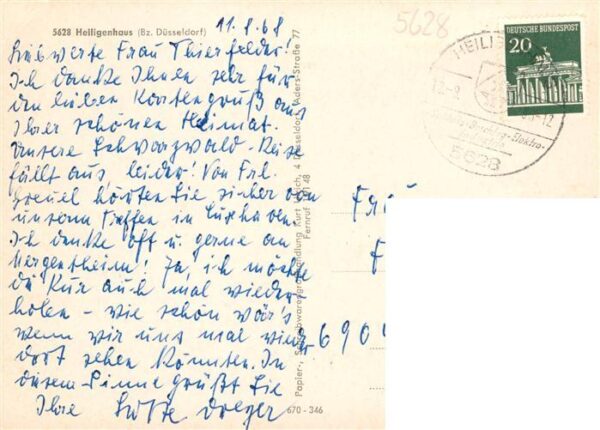 5628 Heiligenhaus (Bz. Düsseldorf)
11.8.68
5628
Liebwerte Frau Thierfelder!
Ich danke Ihnen sehr für
den lieben Kartengruß aus
Ihrer schönen Heimat.
Unsere Schwarzwald-Reise
fällt aus, leider! Von Frl.
Greuel hörten Sie sicher von
unserm Treffen in Cuxhaven.
Ich denke oft u gerne an
Mergentheim! Ja, ich möchte
die Kur auch mal wieder-
holen - wie schön wär's
wenn wir uns mal wieder
dort sehen könnten. In
diesem Sinne grüßt Sie
Ihre Lotte
Papier-, Kurt 4 Düsseldorf, Aders-Straße 77
Fernruf
670 - 346
DEUTSCHE BUNDESPOST
20
HEILIG
12.-8.
-12
Elektro-
5628
Frau
F
6900